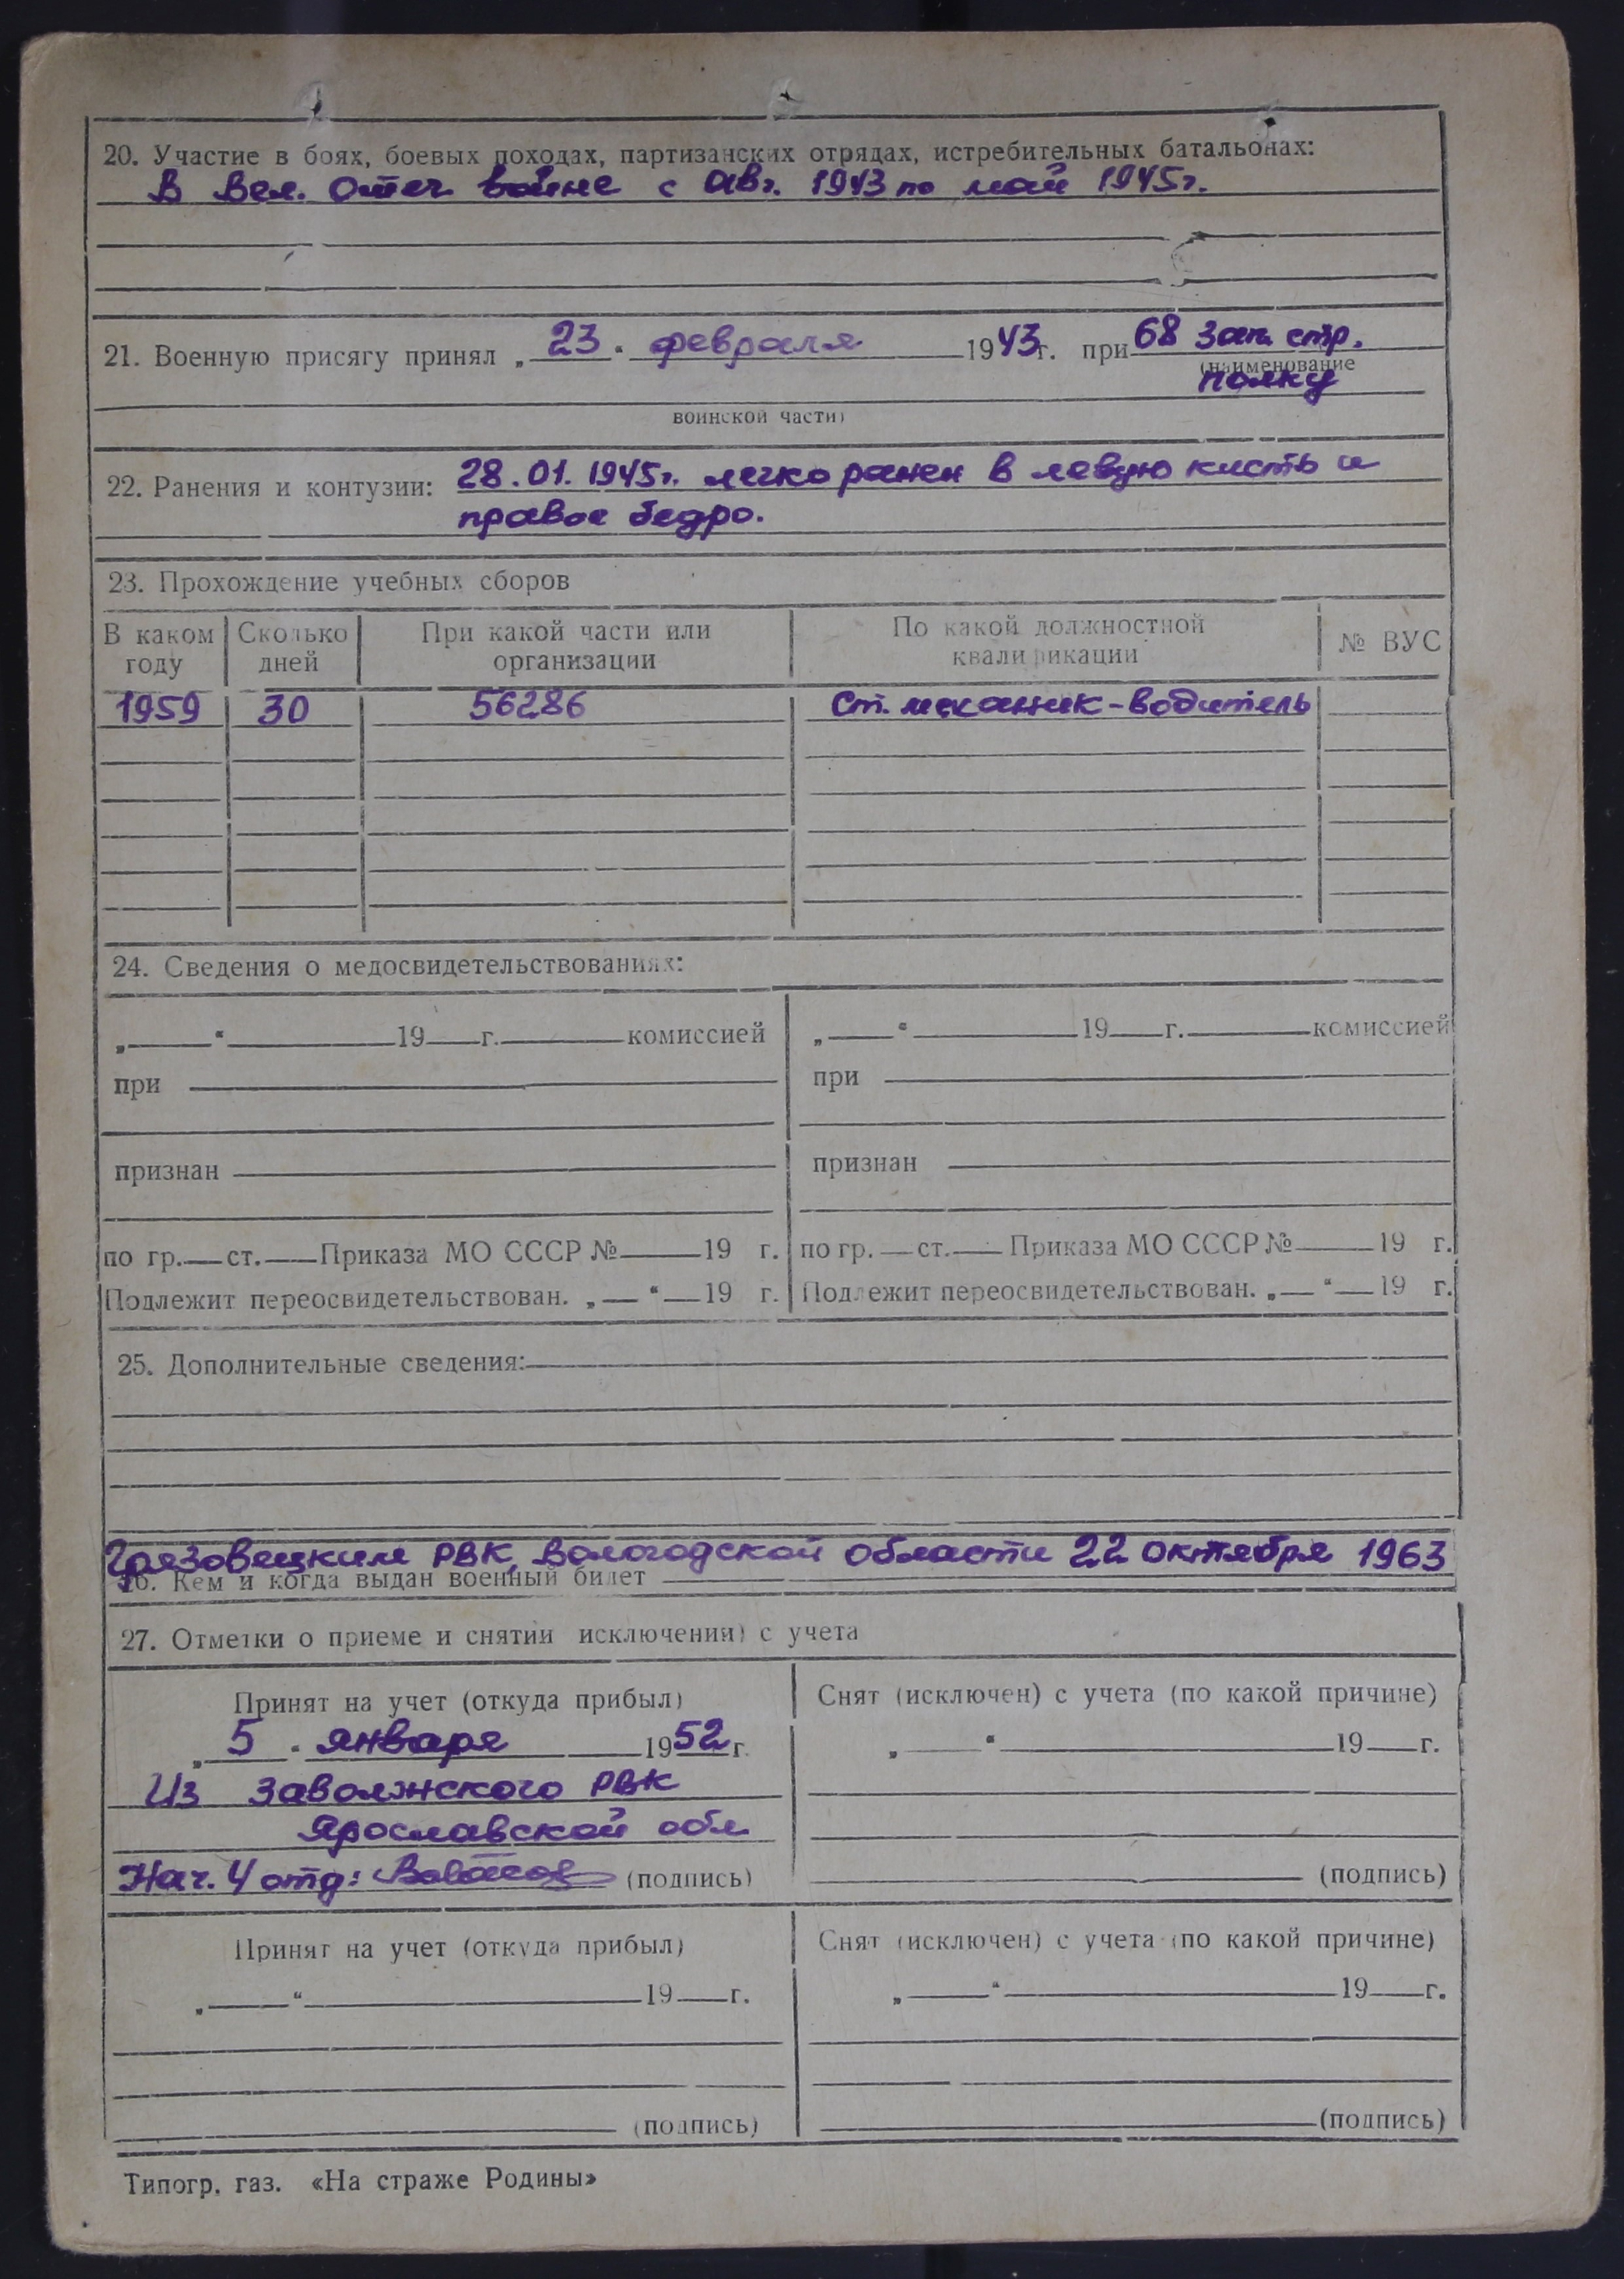 20. Участие в боях, боевых походах, партизанских отрядах, истребительных батальонах:
В Вел. Отеч войне с авг. 1943 по май 1945г.
21. Военную присягу принял „ 23 " февраля 1943г. при 68 зап. стр.
(наименование
полку
воинской части)
22. Ранения и контузии: 28.01.1945г. легко ранен в левую кисть и
правое бедро.
23. Прохождение учебных сборов
В каком году Сколько дней При какой части или организации По какой должностной квалификации № ВУС
1959 30 56286 Ст. механик-водитель
24. Сведения о медосвидетельствованиях:
„ " 19 г. комиссией „ " 19 г. комиссией
при при
признан признан
по гр. ст. Приказа МО СССР № 19 г. по гр. ст. Приказа МО СССР № 19 г.
Подлежит переосвидетельствован. „ " 19 г. Подлежит переосвидетельствован. „ " 19 г.
25. Дополнительные сведения:
Грязовецким РВК, Вологодской области 22 октября 1963
26. Кем и когда выдан военный билет
27. Отметки о приеме и снятии исключении) с учета
Принят на учет (откуда прибыл) Снят (исключен) с учета (по какой причине)
„ 5 " января 1952 г. „ " 19 г.
Из Заволжского РВК
Ярославской обл
Нач. 4 отд: (подпись) (подпись)
Принят на учет (откуда прибыл) Снят (исключен) с учета (по какой причине)
„ " 19 г. „ " 19 г.
(подпись) (подпись)
Типогр. газ. «На страже Родины»